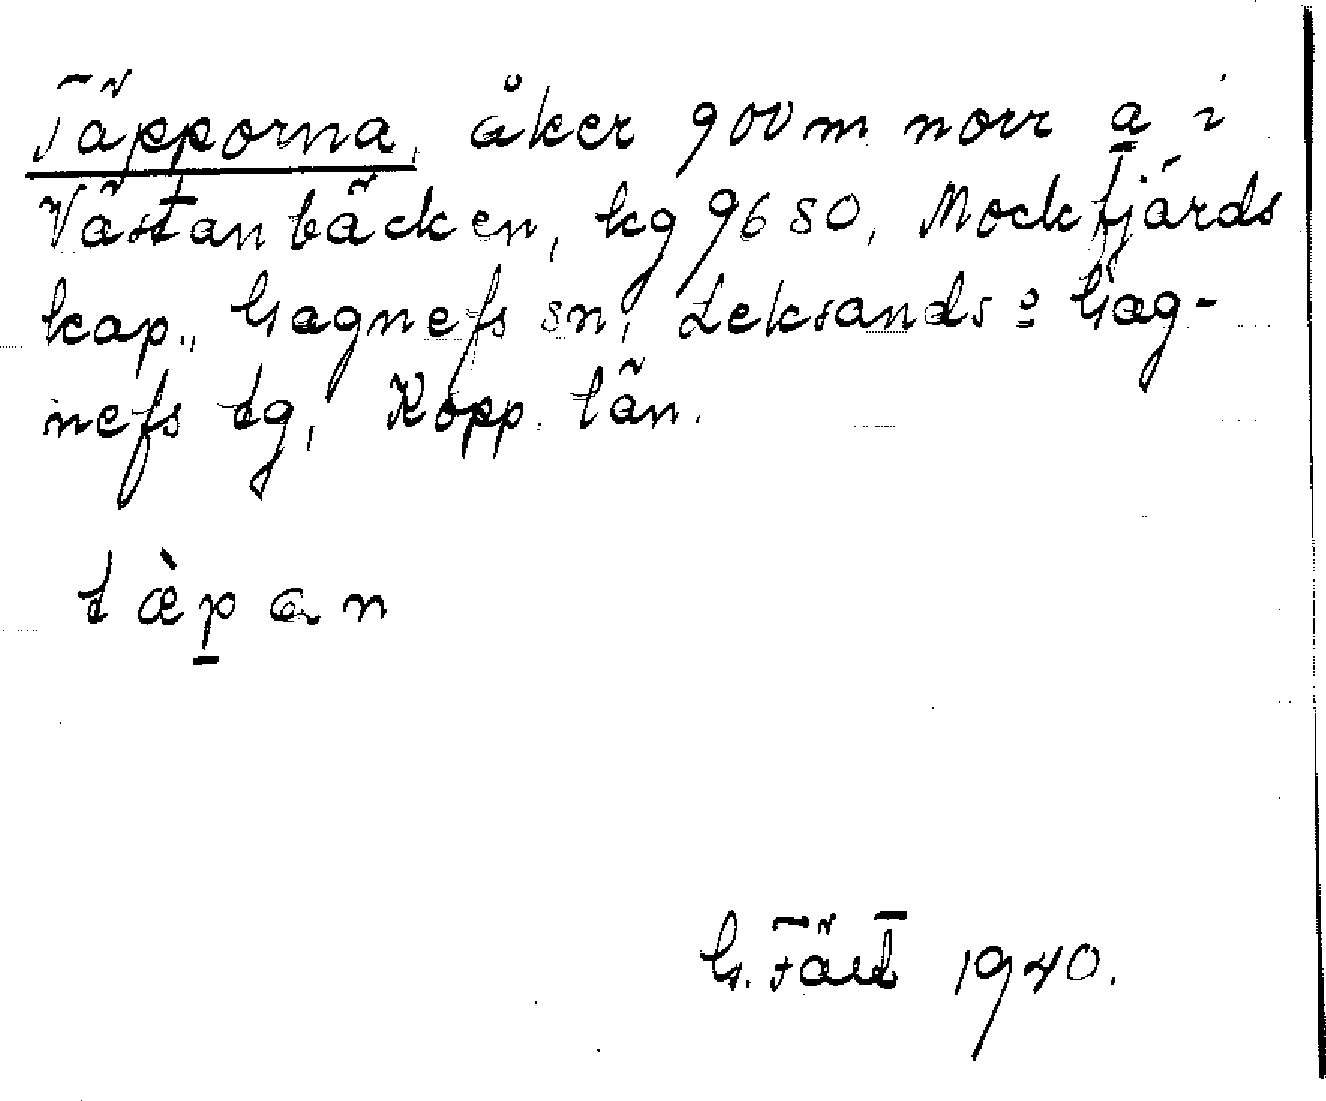 Täpporna, åker 900 m norr a i
Västanbäcken, kg 9680, Mockfjärds
kap., Gagnefs sn, Leksands o Gag-
nefs tg, Kopp. län.
tæ̀p̲an
G. 1940.